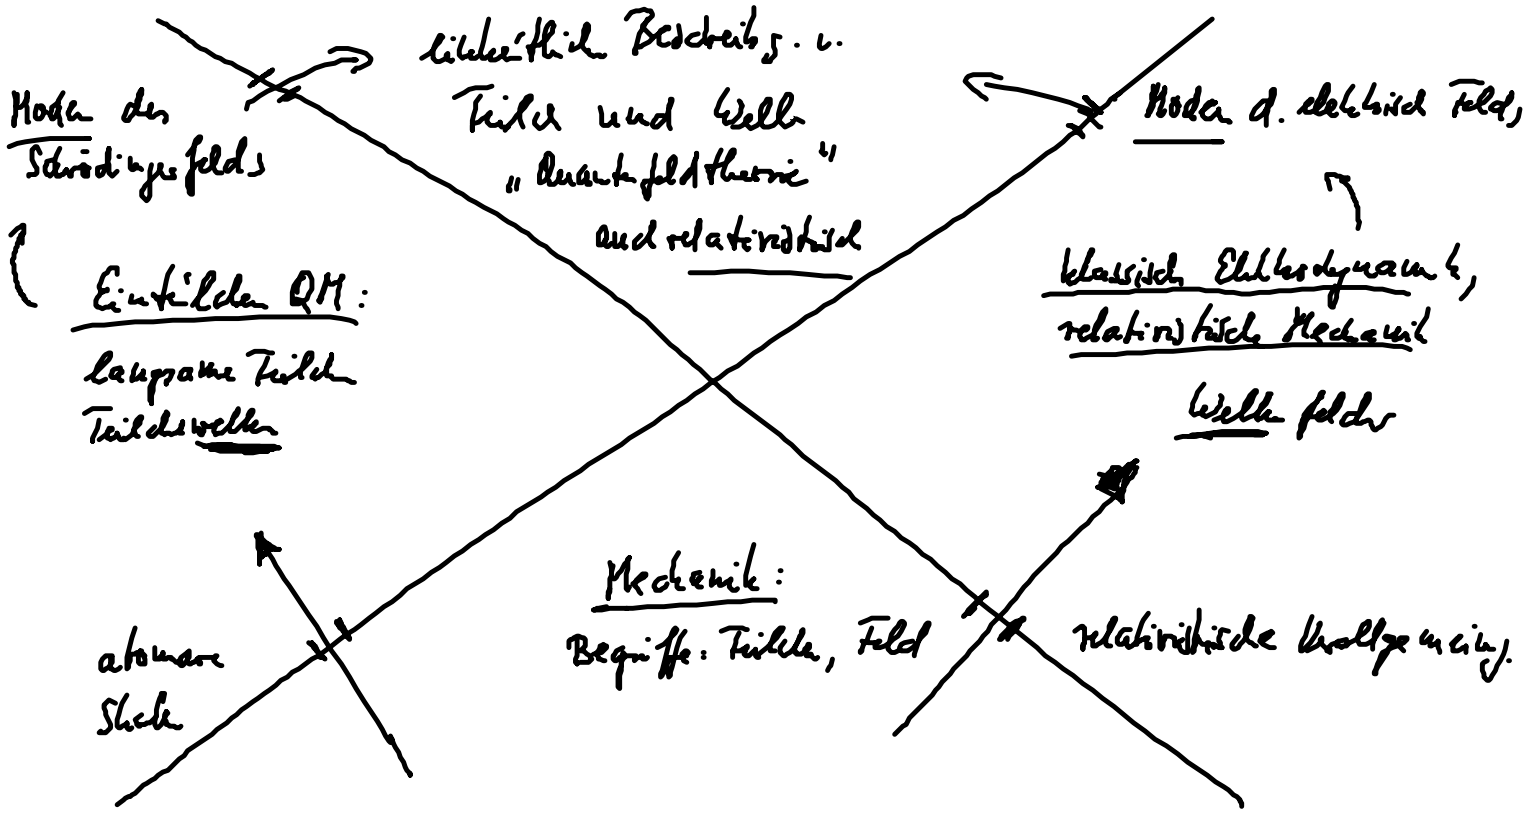 einheitlich Beschreib,g. v.
Teilch und Welln
„Quantenfeldtheorie"
auch relativistisch
Moden des
Schrödingerfelds
Moden d. elektrisch Feld,
Einteilchen QM:
langsame Teilchen
Teilchewellen
klassisch Elektrodynamik,
relativistische Mechanik
Wellen felder
Mechanik:
Begriffe: Teilchen, Feld
atomare
Skalen
relativistische Verallgemein,g.